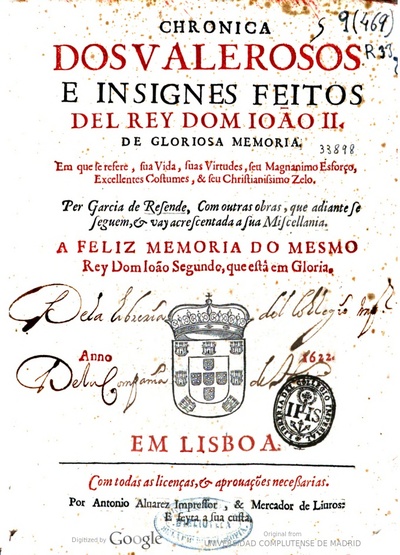 CHRONICA
S 9(469)
DOS VALEROSOS
R 33
E INSIGNES FEITOS
DEL REY DOM IOÃO II.
DE GLORIOSA MEMORIA.
33898
Em que se refere, sua Vida, suas Virtudes, seu Magnanimo Esforço,
Excellentes Costumes, & seu Christianissimo Zelo.
Per Garcia de Resende, Com outras obras, que adiante se
seguem, & vay acrescentada a sua Miscellania.
A FELIZ MEMORIA DO MESMO
Rey Dom Ioão Segundo, que està em Gloria.
De la librería del Collegio Impl
Anno 1622.
De la Compañia de
IHS
EM LISBOA.
Com todas as licenças, & aprouações necessarias.
Por Antonio Aluarez Impressor, & Mercador de Liuros:
E feyta a sua custa.
BIBLIOTECA
Digitized by Google
Original from
UNIVERSIDAD COMPLUTENSE DE MADRID